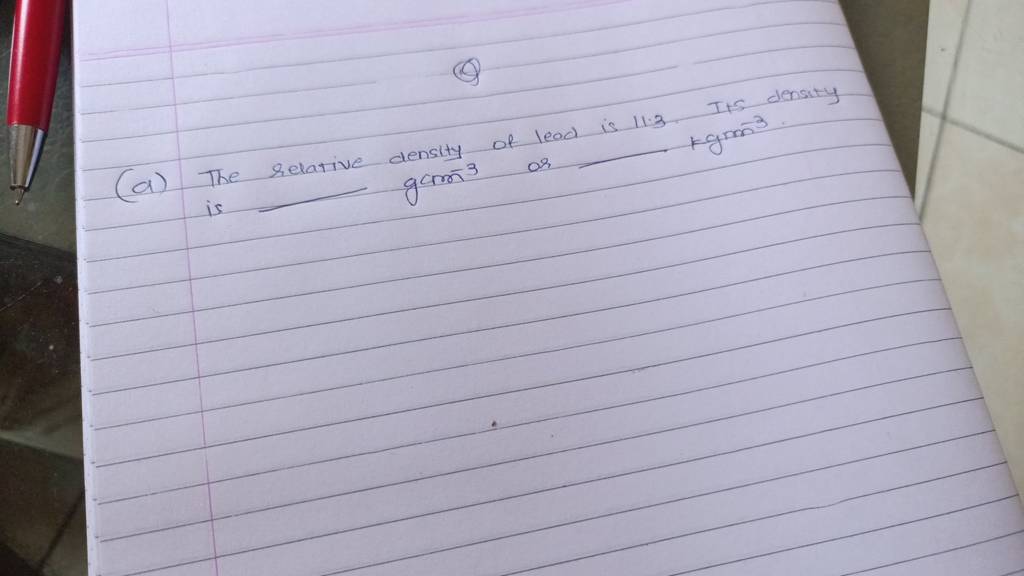 Q
(a) The relative density of lead is 11.3. Its density
is ______ gcm⁻³ or ______ kgm⁻³.